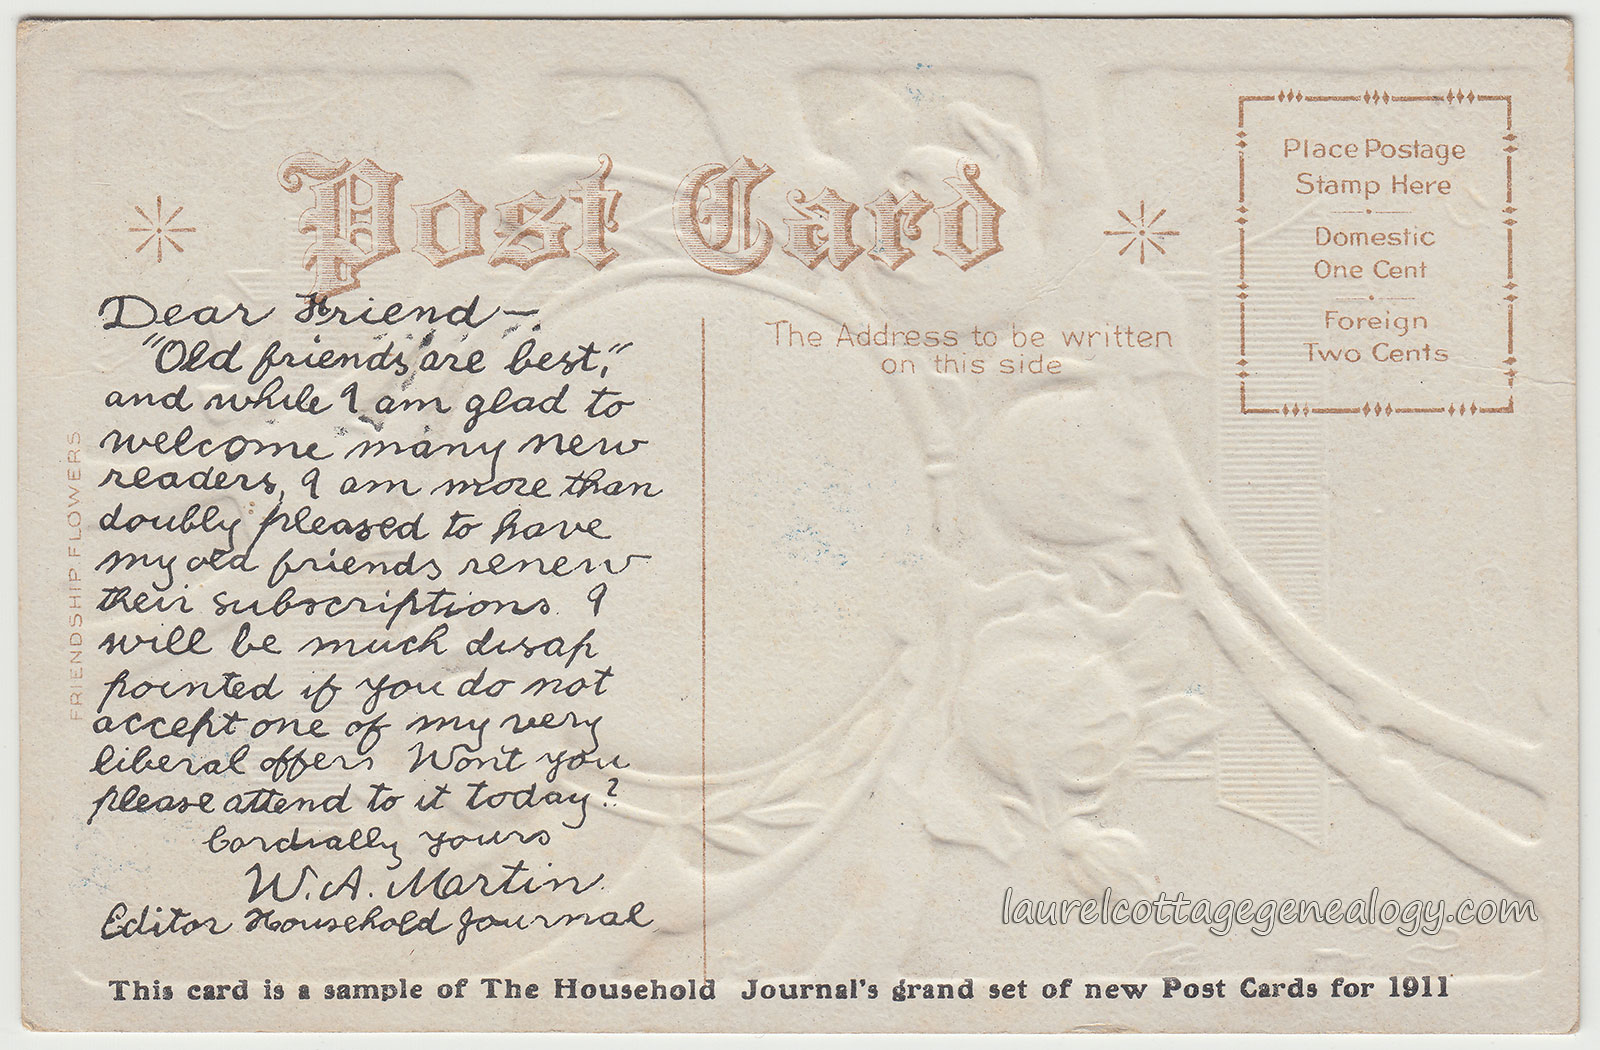 Post Card
Place Postage
Stamp Here
Domestic
One Cent
Foreign
Two Cents
The Address to be written
on this side
FRIENDSHIP FLOWERS
Dear Friend—
"Old friends are best,"
and while I am glad to
welcome many new
readers, I am more than
doubly pleased to have
my old friends renew
their subscriptions. I
will be much disap
pointed if you do not
accept one of my very
liberal offers Won't you
please attend to it today?
Cordially yours
W. A. Martin.
Editor Household Journal
This card is a sample of The Household Journal's grand set of new Post Cards for 1911
laurelcottagegenealogy.com